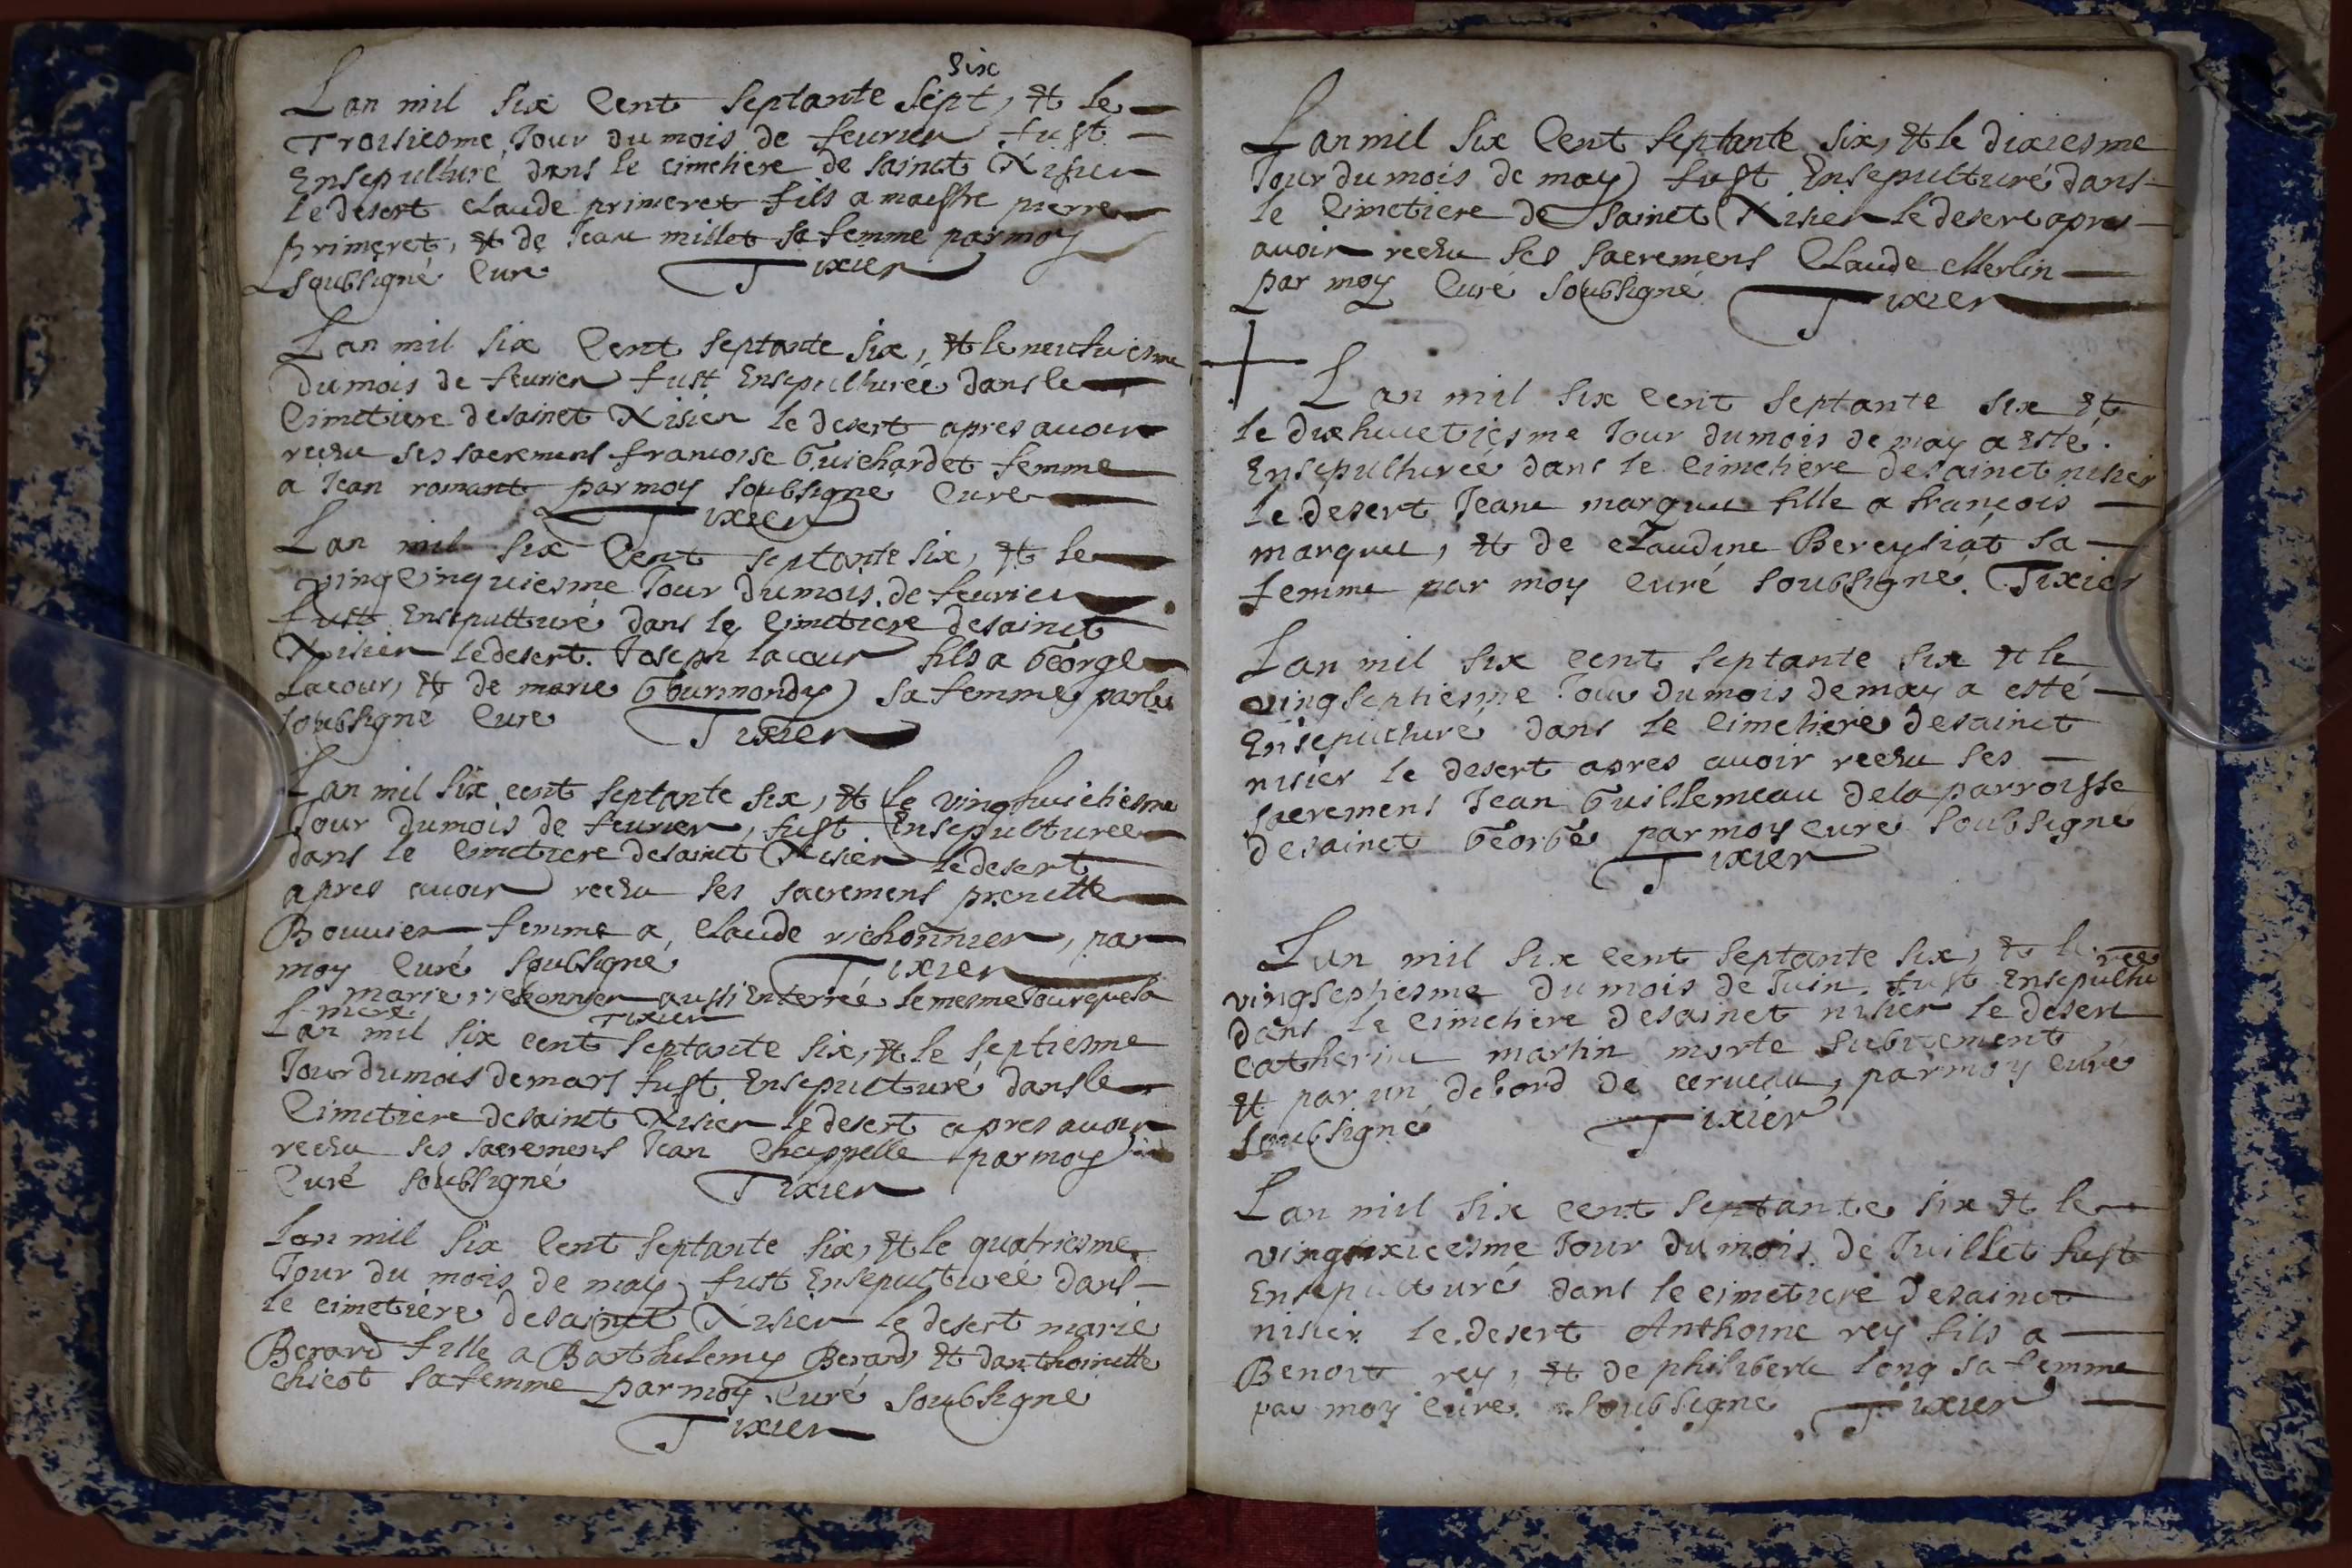 six
Lan mil six Cent septante sept, et le
Troisiesme Jour du mois de feurier fust
Ensepulturé dans le cimetiere de sainct Nisier
le desert claude primeret fils a maistre pierre
primeret, et de Jeau millet sa femme par moy
soubsigné Curé Tixier
Lan mil six Cent septante six, et le neufuiesme
du mois de feurier fust Ensepulturéé dans le
Cimetiere de sainct Nisier le desert apres auoir
recHu ses sacremens francoise Guichardet femme
a Jean romant par moy soubsigné Curé
Tixier
Lan mil six Cent septante six, et le
vingcinquiesme Jour du mois de feurier
fust Ensepulturé dans le Cimetiere de sainct
Nisier le desert. Joseph lacour fils a George
Lacour, et de marie Gourmondy sa femme par le
soubsigné Curé Tixier
Lan mil six cent septante six, et le vinghuictiesme
Jour du mois de feurier, fust Ensepulturee
dans le cimetiere de sainct Nisier le desert
apres auoir recHu ses sacremens prenette
Bouuier femme a Claude richonnier, par
moy Curé soubsigné Tixier
marie richonnier aussi Enterréé le mesme Jour que la
mere. Tixier
Lan mil six cent septante six, et le septiesme
Jour du mois de mars fust Ensepulturé dans le
Cimetiere de sainct Nisier le desert apres auoir
recHu ses sacremens Jean Chappelle par moy
Curé soubsigné Tixier
Lan mil six Cent septante six, et le quatriesme
Jour du mois de may fust Ensepulturéé dans
le cimetiere de sainct Nisier le desert marie
Berard fille a Barthelemy Berard et danthoinette
chicot sa femme par moy Curé soubsigné
Tixier
Lan mil six Cent septante six, et le dixiesme
Jour du mois de may fust Ensepulturé dans
le Cimetiere de sainct Nisier le desert apres
auoir recHu ses sacremens Claude Merlin
par moy Curé soubsigné Tixier
Lan mil six cent septante six et
le dixhuuctiesme Jour du mois de may a Esté
Ensepulturéé dans le cimetiere de sainct nisier
le desert Jeane marguu fille a françois
marguu, et de Claudine Bereysiat sa
femme par moy curé soubsigné. Tixier
Lan mil six cent septante six et le
vingseptiesme Jour du mois de may a esté
Ensepulturé dans le Cimetiere de sainct
nisier le desert apres auoir recHu ses
sacremens Jean Guillemeau de la parroisse
de sainct George par moy curé soubsigné
Tixier
Lan mil six cent septante six, et le réé
vingseptiesme du mois de Juin fust Ensepultu
dans le cimetiere de sainct nisier le desert
catherine martin morte subitement
et par un debord de cerueau, par moy curé
soubsigné Tixier
Lan mil six cent septante six et le
vingsixiesme Jour du mois de Juillet fust
Ensepulturé dans le cimetiere de sainct
nisier le desert Anthoine rey fils a
Benoit rey, et de philiberte long sa femme
par moy curé soubsigné Tixier